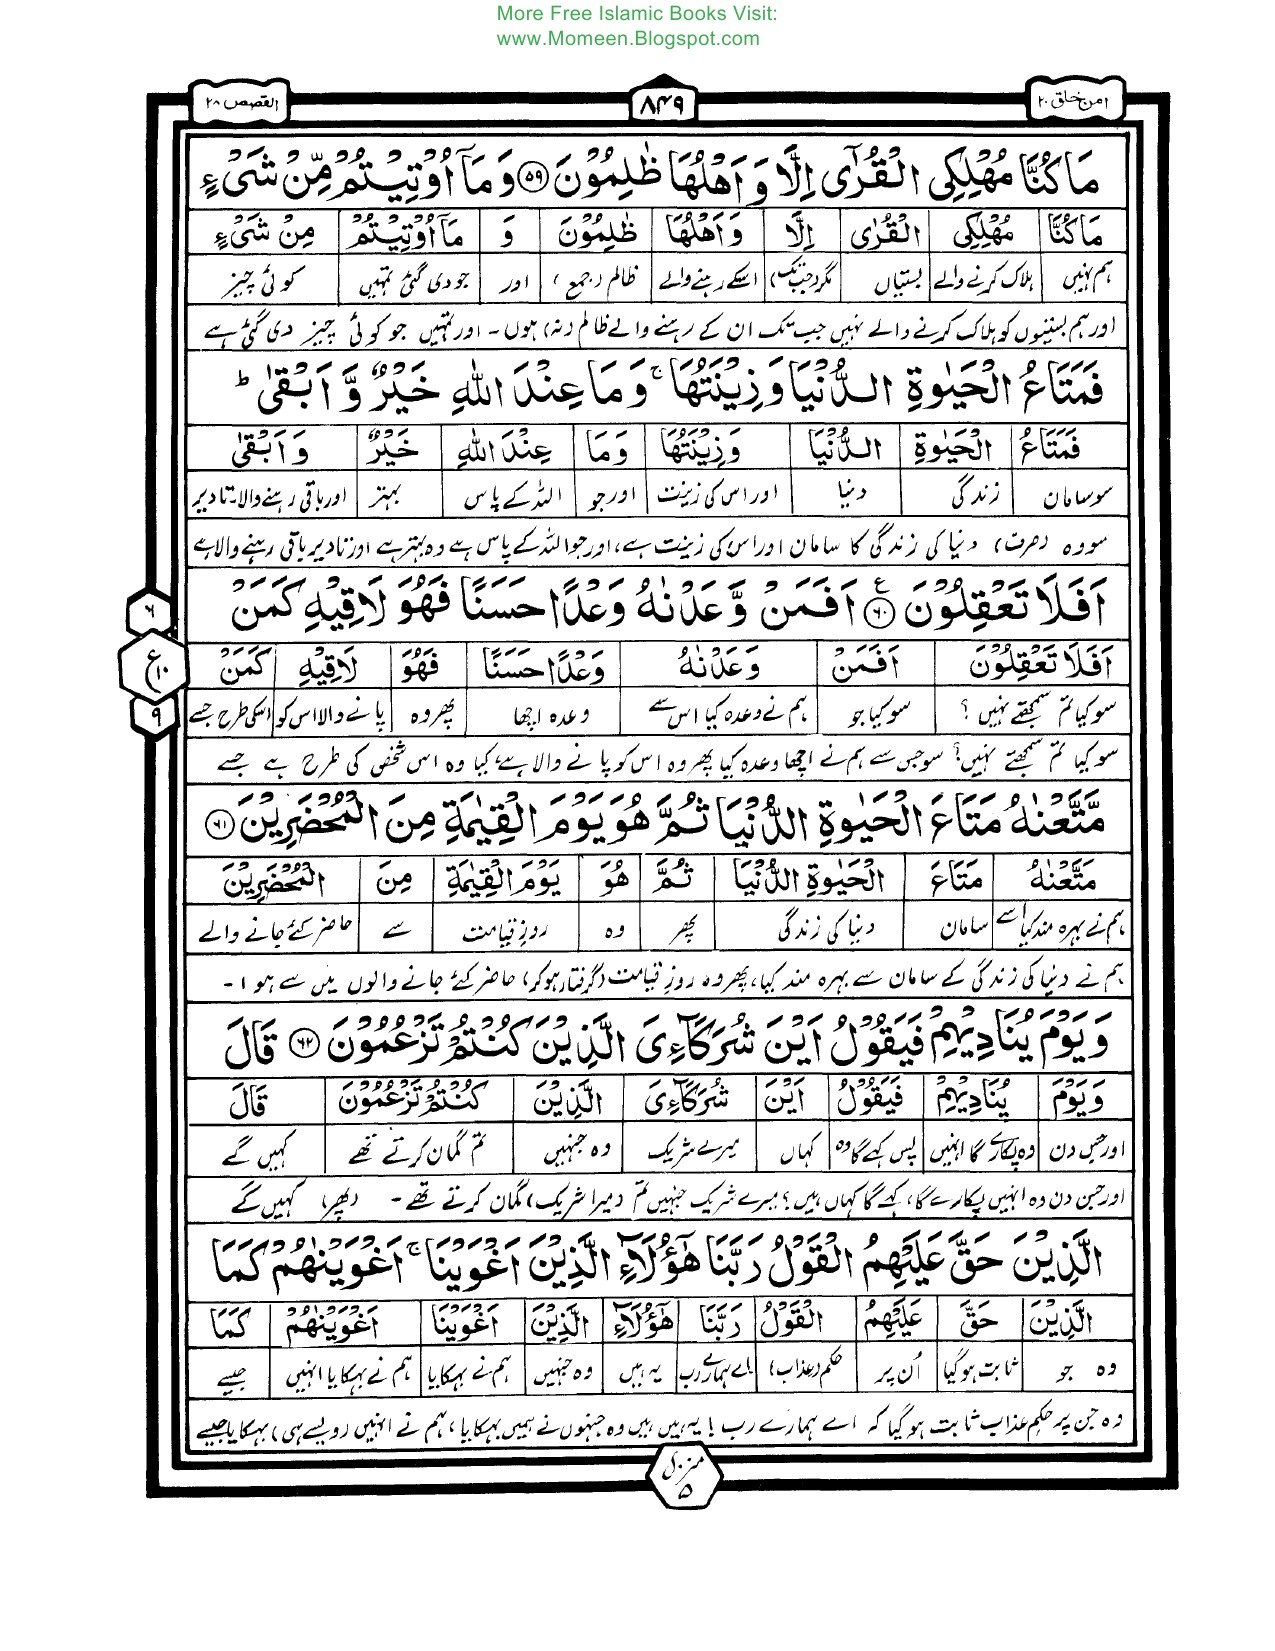 More Free Islamic Books Visit:
www.Momeen.Blogspot.com
امن خلق ۲۰ ۸۴۹ القصص ۲۸
مَا كُنَّا مُهْلِكِى الْقُرٰٓى اِلَّا وَ اَهْلُهَا ظٰلِمُوْنَ ۵۹ وَ مَآ اُوْتِيْتُمْ مِّنْ شَىْءٍ
مَا كُنَّا مُهْلِكِى الْقُرٰٓى اِلَّا وَ اَهْلُهَا ظٰلِمُوْنَ وَ مَآ اُوْتِيْتُمْ مِنْ شَىْءٍ
ہم نہیں ہلاک کرنے والے بستیاں مگر (جب تک) اسکے رہنے والے ظالم (جمع) اور جو دی گئی تمہیں کوئی چیز
اور ہم بستیوں کو ہلاک کرنے والے نہیں جب تک ان کے رہنے والے ظالم (نہ) ہوں ۔ اور تمہیں جو کوئی چیز دی گئی ہے
فَمَتَاعُ الْحَيٰوةِ الدُّنْيَا وَ زِيْنَتُهَا ۚ وَ مَا عِنْدَ اللّٰهِ خَيْرٌ وَّ اَبْقٰى ؕ
فَمَتَاعُ الْحَيٰوةِ الدُّنْيَا وَ زِيْنَتُهَا وَ مَا عِنْدَ اللّٰهِ خَيْرٌ وَ اَبْقٰى
سو سامان زندگی دنیا اور اس کی زینت اور جو اللہ کے پاس بہتر اور باقی رہنے والا۔ تا دیر
سو وہ (صرف) دنیا کی زندگی کا سامان اور اس کی زینت ہے، اور جو اللہ کے پاس ہے وہ بہتر ہے اور تا دیر باقی رہنے والا ہے
اَفَلَا تَعْقِلُوْنَ ۶۰ ع اَفَمَنْ وَّعَدْنٰهُ وَعْدًا حَسَنًا فَهُوَ لَاقِيْهِ كَمَنْ
۶
ع ۱۰
۹
اَفَلَا تَعْقِلُوْنَ اَفَمَنْ وَعَدْنٰهُ وَعْدًا حَسَنًا فَهُوَ لَاقِيْهِ كَمَنْ
سو کیا تم سمجھتے نہیں ؟ سو کیا جو ہم نے وعدہ کیا اس سے وعدہ اچھا پھر وہ پانے والا اس کو اسکی طرح جسے
سو کیا تم سمجھتے نہیں؟ سو جس سے ہم نے اچھا وعدہ کیا پھر وہ اس کو پانے والا ہے، کیا وہ اس شخص کی طرح ہے جسے
مَّتَّعْنٰهُ مَتَاعَ الْحَيٰوةِ الدُّنْيَا ثُمَّ هُوَ يَوْمَ الْقِيٰمَةِ مِنَ الْمُحْضَرِيْنَ ۶۱
مَتَّعْنٰهُ مَتَاعَ الْحَيٰوةِ الدُّنْيَا ثُمَّ هُوَ يَوْمَ الْقِيٰمَةِ مِنَ الْمُحْضَرِيْنَ
ہم نے بہرہ مند کیا اسے سامان دنیا کی زندگی پھر وہ روزِ قیامت سے حاضر کئے جانے والے
ہم نے دنیا کی زندگی کے سامان سے بہرہ مند کیا، پھر وہ روزِ قیامت (گرفتار ہو کر) حاضر کئے جانے والوں میں سے ہوا ۔
وَ يَوْمَ يُنَادِيْهِمْ فَيَقُوْلُ اَيْنَ شُرَكَآءِىَ الَّذِيْنَ كُنْتُمْ تَزْعُمُوْنَ ۶۲ قَالَ
وَ يَوْمَ يُنَادِيْهِمْ فَيَقُوْلُ اَيْنَ شُرَكَآءِىَ الَّذِيْنَ كُنْتُمْ تَزْعُمُوْنَ قَالَ
اور جس دن وہ پکارے گا انہیں پس کہے گا وہ کہاں میرے شریک وہ جنہیں تم گمان کرتے تھے کہیں گے
اور جس دن وہ انہیں پکارے گا، کہے گا کہاں ہیں؟ میرے شریک جنہیں تم (میرا شریک) گمان کرتے تھے ۔ (پھر) کہیں گے
الَّذِيْنَ حَقَّ عَلَيْهِمُ الْقَوْلُ رَبَّنَا هٰٓؤُلَآءِ الَّذِيْنَ اَغْوَيْنَا ۚ اَغْوَيْنٰهُمْ كَمَا
الَّذِيْنَ حَقَّ عَلَيْهِمُ الْقَوْلُ رَبَّنَا هٰٓؤُلَآءِ الَّذِيْنَ اَغْوَيْنَا اَغْوَيْنٰهُمْ كَمَا
وہ جو ثابت ہو گیا اُن پر حکم (عذاب) اے ہمارے رب یہ ہیں وہ جنہیں ہم نے بہکایا ہم نے بہکایا انہیں جیسے
وہ جن پر حکم عذاب ثابت ہو گیا کہ اے ہمارے رب! یہ ہیں وہ جنہوں نے ہمیں بہکایا، ہم نے انہیں (ویسے ہی) بہکایا جیسے
منزل ۵